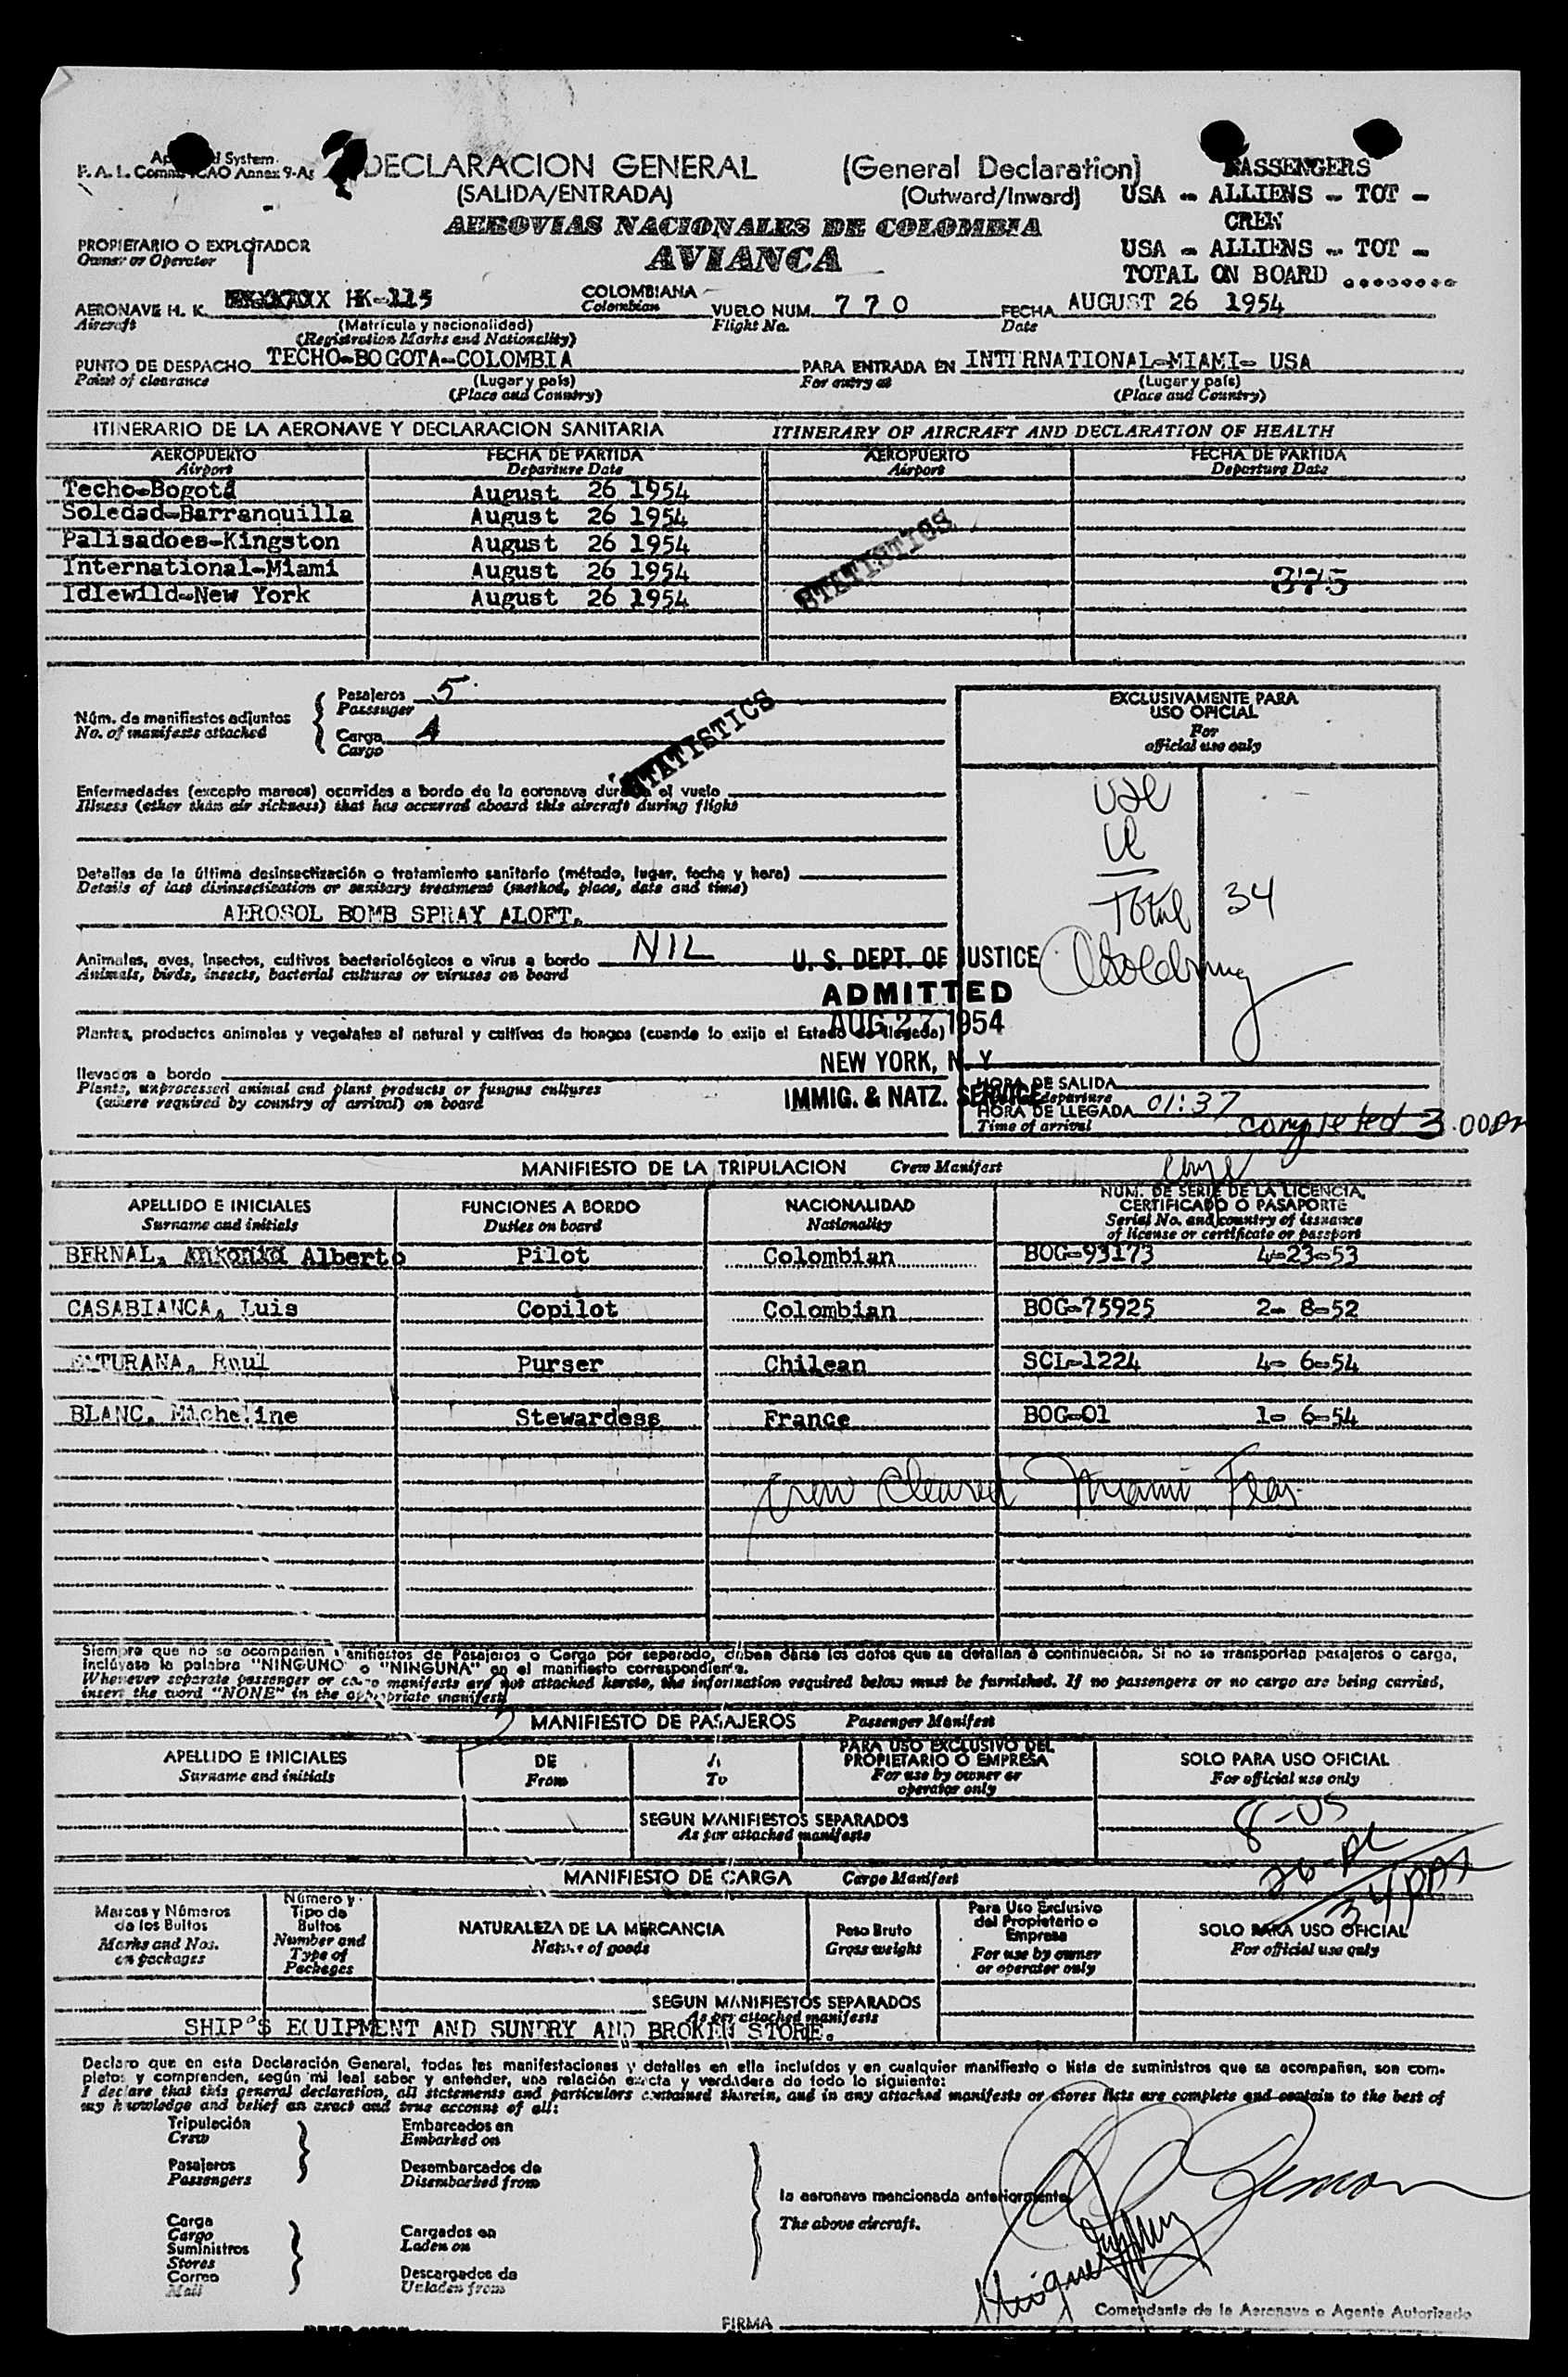 DECLARACION GENERAL (General Declaration) PASSENGERS
(SALIDA/ENTRADA) (Outward/Inward) USA - ALLIENS - TOT -
CREW
AEROVIAS NACIONALES DE COLOMBIA
AVIANCA
USA - ALLIENS - TOT -
TOTAL ON BOARD ........
PROPIETARIO O EXPLOTADOR
Owner or Operator
AERONAVE H. K. HK-115 COLOMBIANA VUELO NUM. 770 FECHA AUGUST 26 1954
Aircraft Colombian Flight No. Date
(Matrícula y nacionalidad)
(Registration Marks and Nationality)
PUNTO DE DESPACHO TECHO-BOGOTA-COLOMBIA PARA ENTRADA EN INTERNATIONAL-MIAMI- USA
Point of clearance (Lugar y país) For entry at (Lugar y país)
(Place and Country) (Place and Country)
ITINERARIO DE LA AERONAVE Y DECLARACION SANITARIA ITINERARY OF AIRCRAFT AND DECLARATION OF HEALTH
AEROPUERTO FECHA DE PARTIDA AEROPUERTO FECHA DE PARTIDA
Airport Departure Date Airport Departure Date
Techo-Bogotá August 26 1954
Soledad-Barranquilla August 26 1954
Palisadoes-Kingston August 26 1954
International-Miami August 26 1954
Idlewild-New York August 26 1954
STATISTICS
375
Núm. de manifiestos adjuntos
No. of manifests attached
Pasajeros 5
Passenger
Carga 4
Cargo
STATISTICS
EXCLUSIVAMENTE PARA
USO OFICIAL
For
official use only
Enfermedades (excepto mareos) ocurridas a bordo de la aeronave durante el vuelo
Illness (other than air sickness) that has occurred aboard this aircraft during flight
Detalles de la última desinsectización o tratamiento sanitario (método, lugar, fecha y hora)
Details of last disinsectization or sanitary treatment (method, place, date and time)
AEROSOL BOMB SPRAY ALOFT.
Total 34
Animales, aves, insectos, cultivos bacteriológicos o virus a bordo NIL
Animals, birds, insects, bacterial cultures or viruses on board
U. S. DEPT. OF JUSTICE
ADMITTED
AUG 27 1954
NEW YORK, N. Y.
IMMIG. & NATZ. SERVICE
Plantas, productos animales y vegetales al natural y cultivos de hongos (cuando lo exija el Estado de llegada)
llevados a bordo
Plants, unprocessed animal and plant products or fungus cultures
(where required by country of arrival) on board
HORA DE SALIDA
departure
HORA DE LLEGADA 01:37
Time of arrival
completed 3.00AM
MANIFIESTO DE LA TRIPULACION Crew Manifest
APELLIDO E INICIALES FUNCIONES A BORDO NACIONALIDAD NUM. DE SERIE DE LA LICENCIA,
CERTIFICADO O PASAPORTE
Surname and initials Duties on board Nationality Serial No. and country of issuance
of license or certificate or passport
BERNAL, Antonio Alberto Pilot Colombian BOG-93173 4-23-53
CASABIANCA, Luis Copilot Colombian BOG-75925 2- 8-52
MATURANA, Raul Purser Chilean SCL-1224 4- 6-54
BLANC, Micheline Stewardess France BOG-01 1- 6-54
Crew Cleared Miami Fla.
Siempre que no se acompañen manifiestos de Pasajeros o Carga por separado, deben darse los datos que se detallan a continuación. Si no se transportan pasajeros o carga,
inclúyase la palabra "NINGUNO" o "NINGUNA" en el manifiesto correspondiente.
Whenever separate passenger or cargo manifests are not attached hereto, the information required below must be furnished. If no passengers or no cargo are being carried,
insert the word "NONE" in the appropriate manifest.
MANIFIESTO DE PASAJEROS Passenger Manifest
APELLIDO E INICIALES DE A PARA USO EXCLUSIVO DEL
PROPIETARIO O EMPRESA SOLO PARA USO OFICIAL
Surname and initials From To For use by owner or
operator only For official use only
SEGUN MANIFIESTOS SEPARADOS
As per attached manifests
8-US
34 pax
MANIFIESTO DE CARGA Cargo Manifest
Marcas y Números
de los Bultos
Marks and Nos.
on packages
Número y
Tipo de
Bultos
Number and
Type of
Packages
NATURALEZA DE LA MERCANCIA
Nature of goods
Peso Bruto
Gross weight
Para Uso Exclusivo
del Propietario o
Empresa
For use by owner
or operator only
SOLO PARA USO OFICIAL
For official use only
SEGUN MANIFIESTOS SEPARADOS
As per attached manifests
SHIP'S EQUIPMENT AND SUNDRY AND BROKEN STORE.
Declaro que en esta Declaración General, todas las manifestaciones y detalles en ella incluídos y en cualquier manifiesto o lista de suministros que se acompañen, son com-
pletos y comprenden, según mi leal saber y entender, una relación exacta y verdadera de todo lo siguiente:
I declare that this general declaration, all statements and particulars contained therein, and in any attached manifests or stores lists are complete and contain to the best of
my knowledge and belief an exact and true account of all:
Tripulación
Crew
Pasajeros
Passengers
Embarcados en
Embarked on
Desembarcados de
Disembarked from
Carga
Cargo
Suministros
Stores
Correo
Mail
Cargados en
Laden on
Descargados de
Unladen from
la aeronave mencionada anteriormente.
The above aircraft.
Comandante de la Aeronave o Agente Autorizado
FIRMA